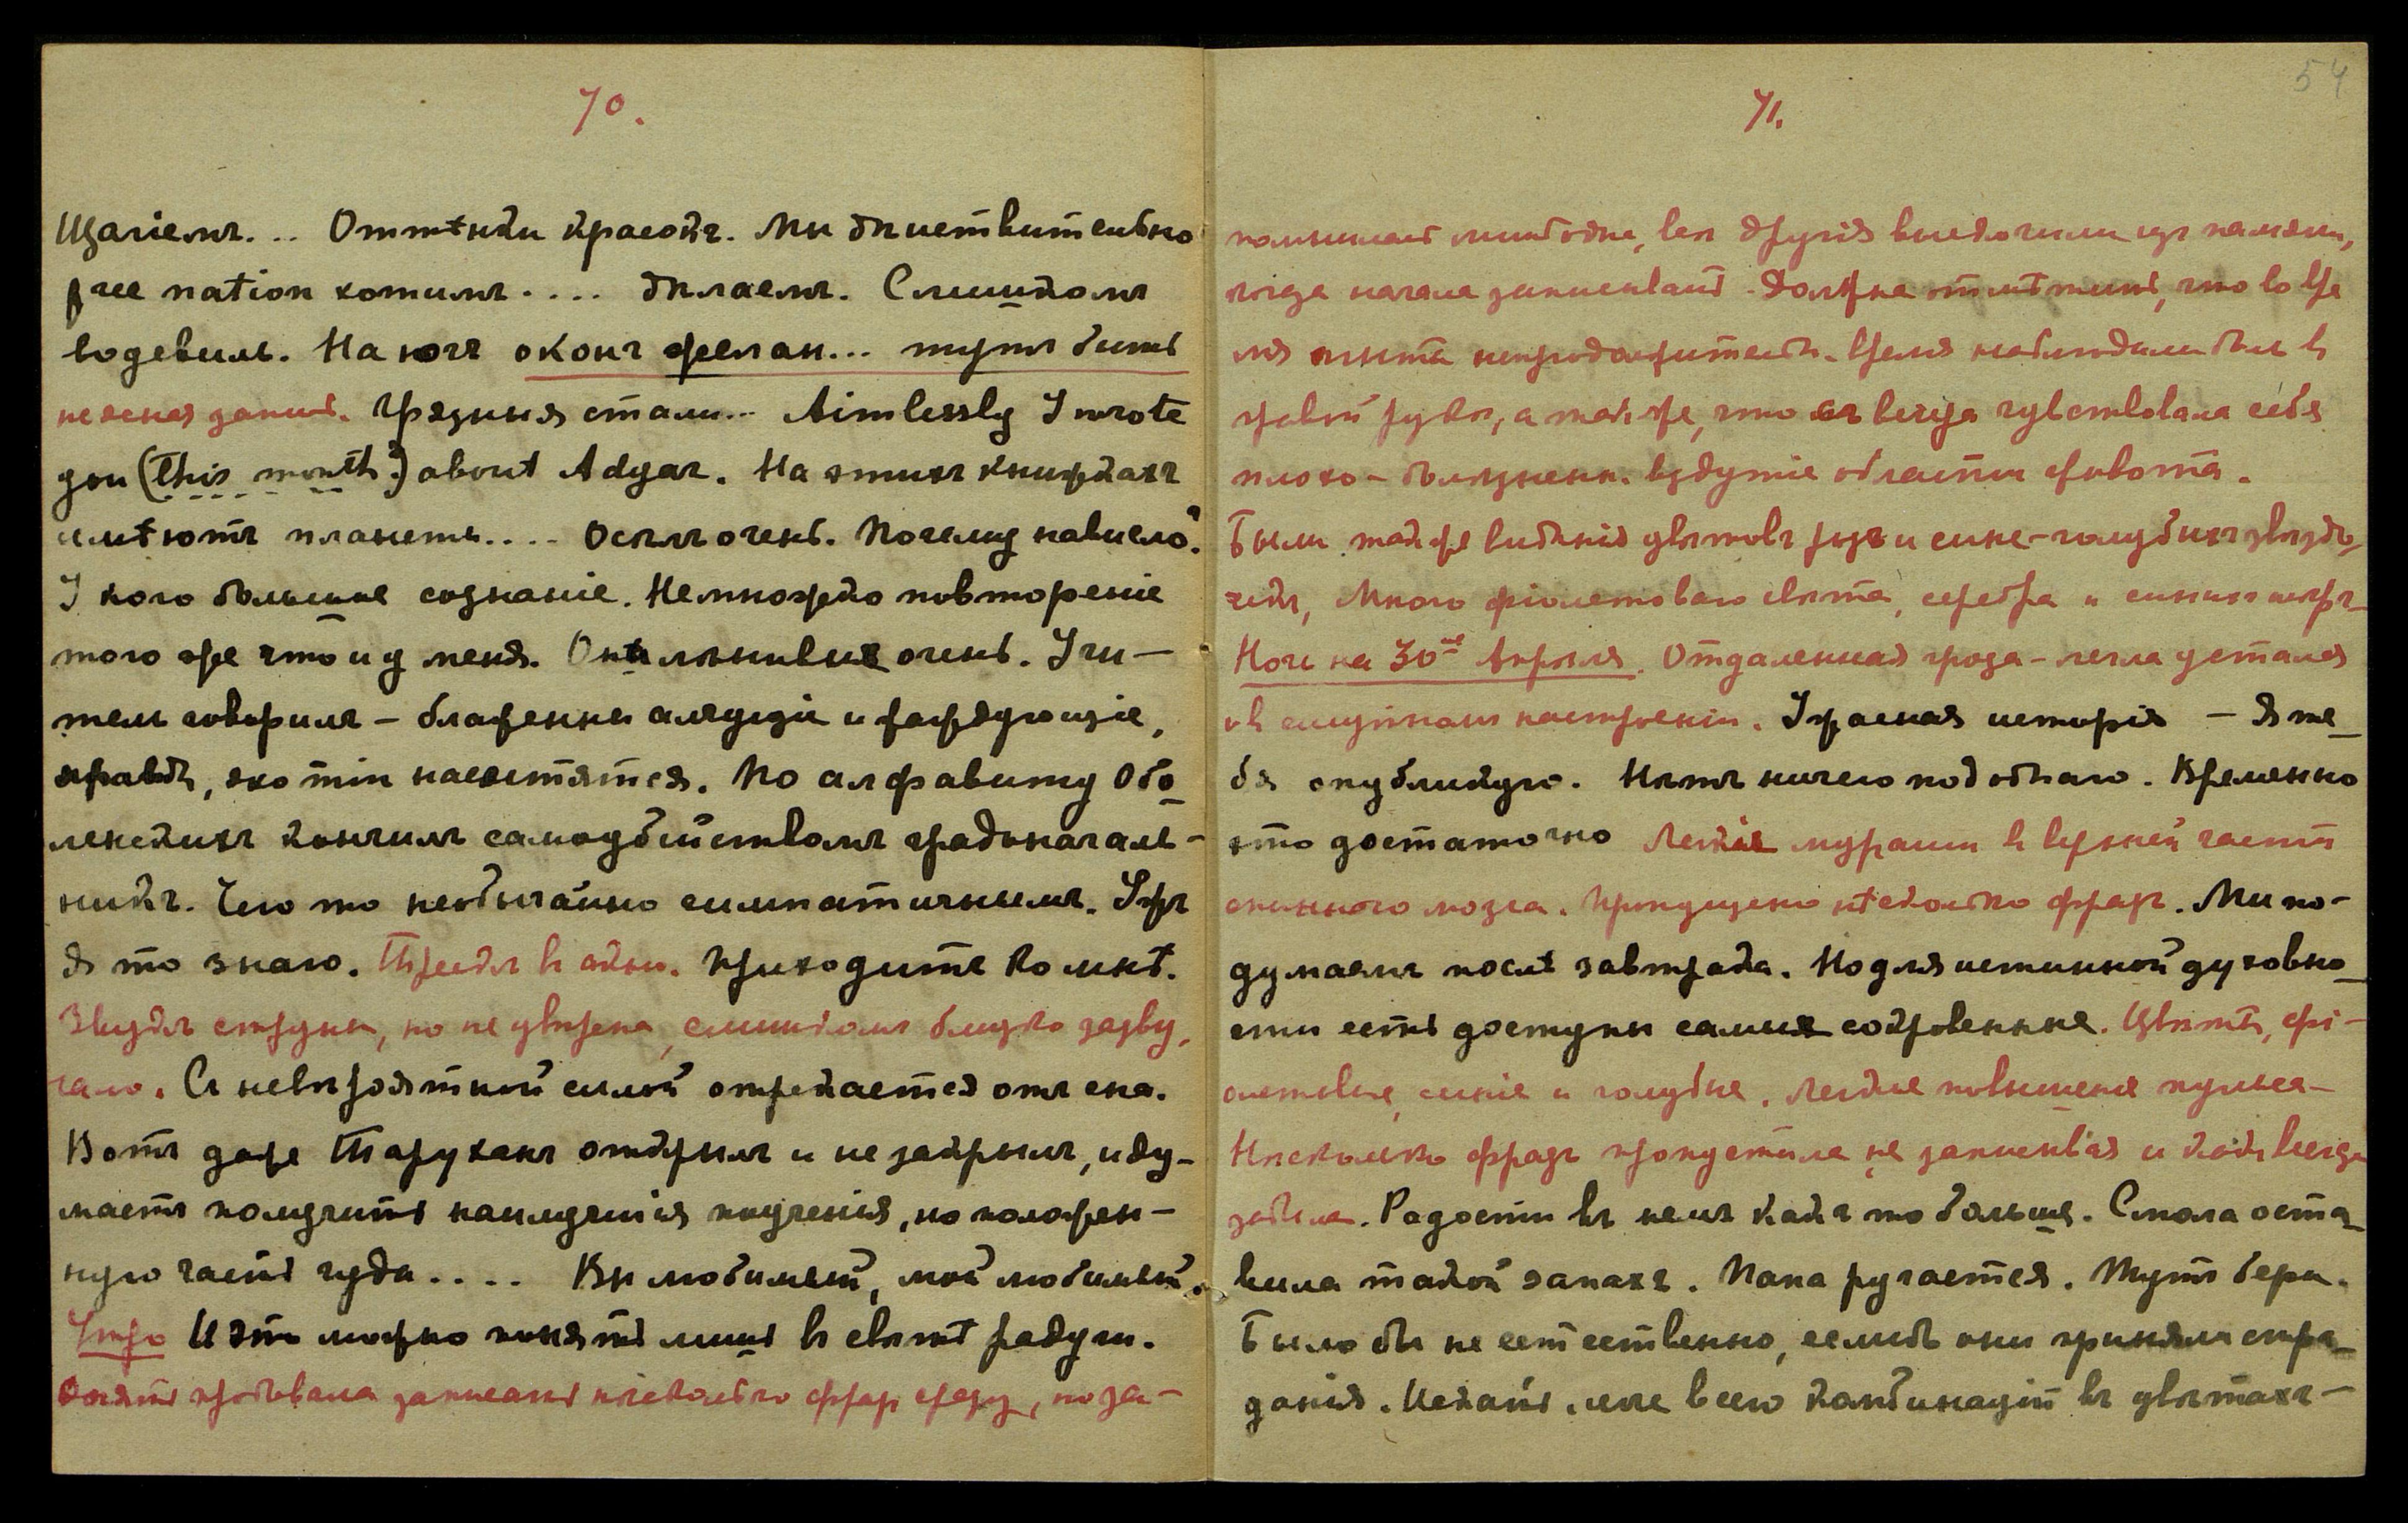 70.
Щагіемъ... Оттѣнки красокъ. Мы дѣйствительно
free nation хотимъ.... дѣлаемъ. Слишкомъ
водевиль. На югѣ оконч феллах... тутъ быть
неясная запись. Грязныя стали... Aimlessly I wrote
you (this month?) about Adyar. На этихъ книжкахъ
имѣютъ планеты.... Оселъ очень. Почему нависло?
У кого большое сознаніе. Немножко повтореніе
того же что и у меня. Они лѣнивые очень. Учи-
тель говорилъ – блаженны алчущіе и жаждующіе
правды, яко тіи насытятся. По алфавиту Обо
ленскихъ кончилъ самоубійствомъ градоначаль-
никъ. Чего то необычайно симпатичнымъ. Ужъ
я то знаю. Трескъ въ окно. Приходите ко мнѣ.
Звукъ струны, но не увѣрена, слишкомъ близко зазву
чало. Съ невѣроятной силой отрекается отъ сна.
Вотъ даже Тарухан открылъ и не закрылъ, и ду-
маетъ получить наилучшія поученія, но положен-
ную часть чуда.... Вы любимый, мой любимый.
Утро И это можно понять лишь въ свѣтѣ радуги.
Опять пробовала записать нѣсколько фразъ сразу, но за-
54
71.
помнилась лишь одна, всѣ другія выскочили изъ памяти,
когда начала записывать. Должна отмѣтить, что во вре
мя опыта непродолжительн. время наблюдали боль въ
правой рукѣ, а также, что съ вечера чувствовала себя
плохо – болѣзненн. вздутіе области живота.
Были также видѣнія цвѣтовъ розъ и сине-голубыхъ звѣздо
чекъ, Много фіолетоваго свѣта, серебра и синихъ искръ
Ночь на 30ое Апрѣля. Отдаленная гроза – легла усталая
въ смущённомъ настроеніи. Ужасная исторія – Я те
бя опубликую. Нѣтъ ничего подобнаго. Временно
это достаточно Легкіе мураши въ верхней части
спинного мозга. Пропущено нѣсколько фразъ. Мы по-
думаемъ послѣ завтрака. Но для истинной духовно
сти есть доступы самые сокровенные. Цвѣта, фі-
олетовые, синіе и голубые. Легкое повышеніе пульса –
Нѣсколько фразъ пропустила не записывая и какъ всегда
забыла. Радости въ немъ какъ то больше. Смола оста
вила такой запахъ. Папа ругается. Тутъ бери.
Было бы не естественно, еслибъ они приняли стра
данія. Искать комбинацій въ цвѣтахъ –